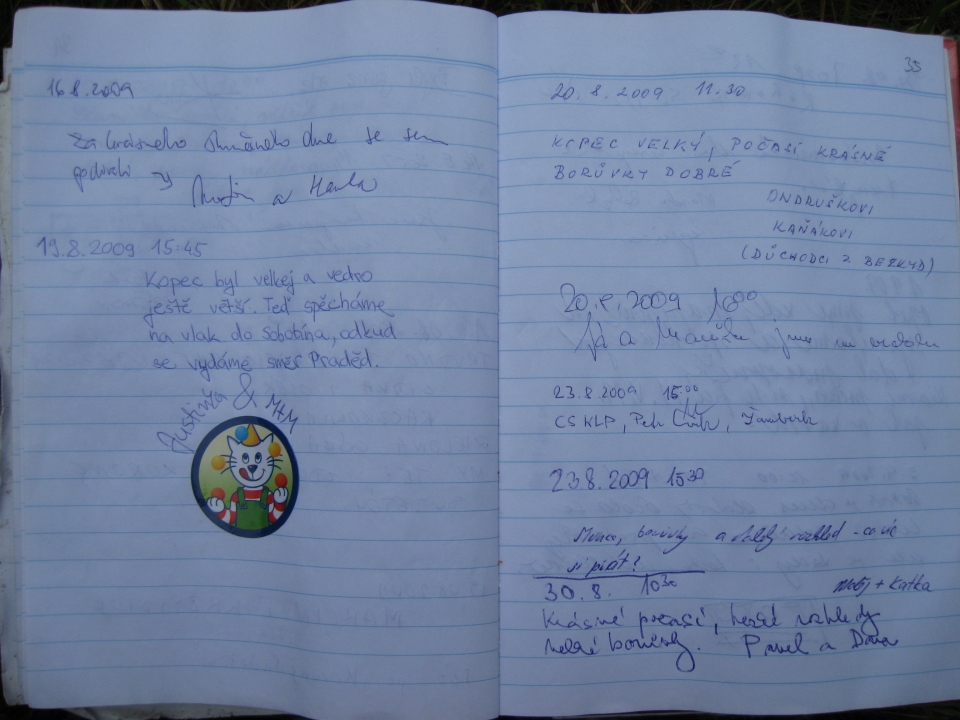 16.8.2009
Za krásného slunného dne se sem
podívali
Martin a Hanka
19.8.2009 15:45
Kopec byl velkej a vedro
ještě větší. Teď spěcháme
na vlak do Sobotína, odkud
se vydáme směr Praděd.
Justinka & M+M
35
20.8.2009 11.30
KOPEC VELKÝ, POČASÍ KRÁSNÉ
BORŮVKY DOBRÉ
ONDRUŠKOVI
KAŇÁKOVI
(DŮCHODCI Z BEZKYD)
20.8.2009 1600
Já a jsme
23.8.2009 15:00
Petr Žamberk
23.8.2009 1530
borůvky a rozhled - co víc
si přát?
30.8. 1030
+ Katka
Krásné počasí, hezké rozhledy
velké borůvky. Pavel a Dana